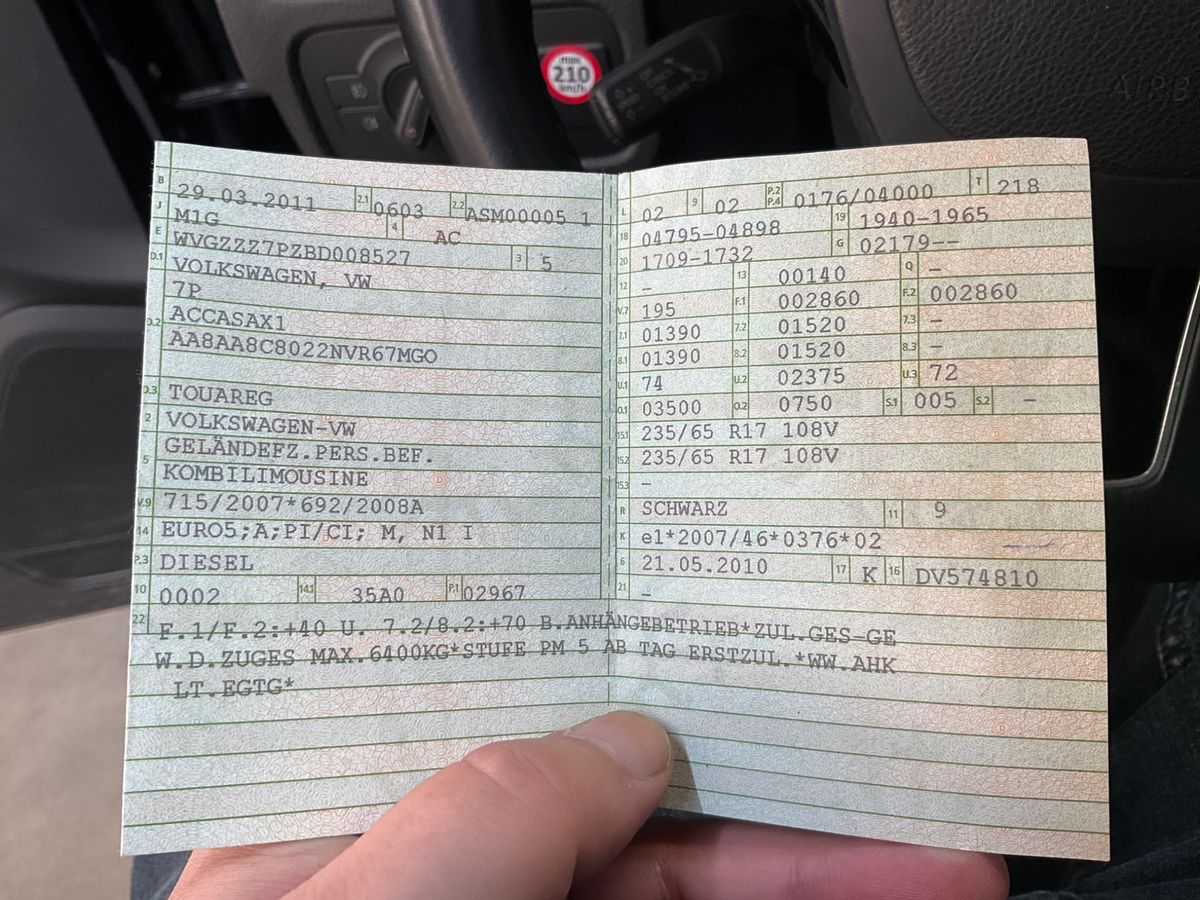 min
210
km/h
AIRB
B 29.03.2011 2.1 0603 2.2 ASM00005 1
J M1G 4 AC
E WVGZZZ7PZBD008527 3 5
D.1 VOLKSWAGEN, VW
7P
D.2 ACCASAX1
AA8AA8C8022NVR67MGO
D.3 TOUAREG
2 VOLKSWAGEN-VW
GELÄNDEFZ.PERS.BEF.
5 KOMBILIMOUSINE
V.9 715/2007*692/2008A
14 EURO5;A;PI/CI; M, N1 I
P.3 DIESEL
10 0002 14.1 35A0 P.1 02967
L 02 9 02 P.2 P.4 0176/04000 T 218
18 04795-04898 19 1940-1965
20 1709-1732 G 02179--
12 – 13 00140 Q –
V.7 195 F.1 002860 F.2 002860
7.1 01390 7.2 01520 7.3 –
8.1 01390 8.2 01520 8.3 –
U.1 74 U.2 02375 U.3 72
O.1 03500 O.2 0750 S.1 005 S.2 –
15.1 235/65 R17 108V
15.2 235/65 R17 108V
15.3 –
R SCHWARZ 11 9
K e1*2007/46*0376*02
6 21.05.2010 17 K 16 DV574810
21 –
22 F.1/F.2:+40 U. 7.2/8.2:+70 B.ANHÄNGEBETRIEB*ZUL.GES-GE
W.D.ZUGES MAX.6400KG*STUFE PM 5 AB TAG ERSTZUL.*WW.AHK
LT.EGTG*